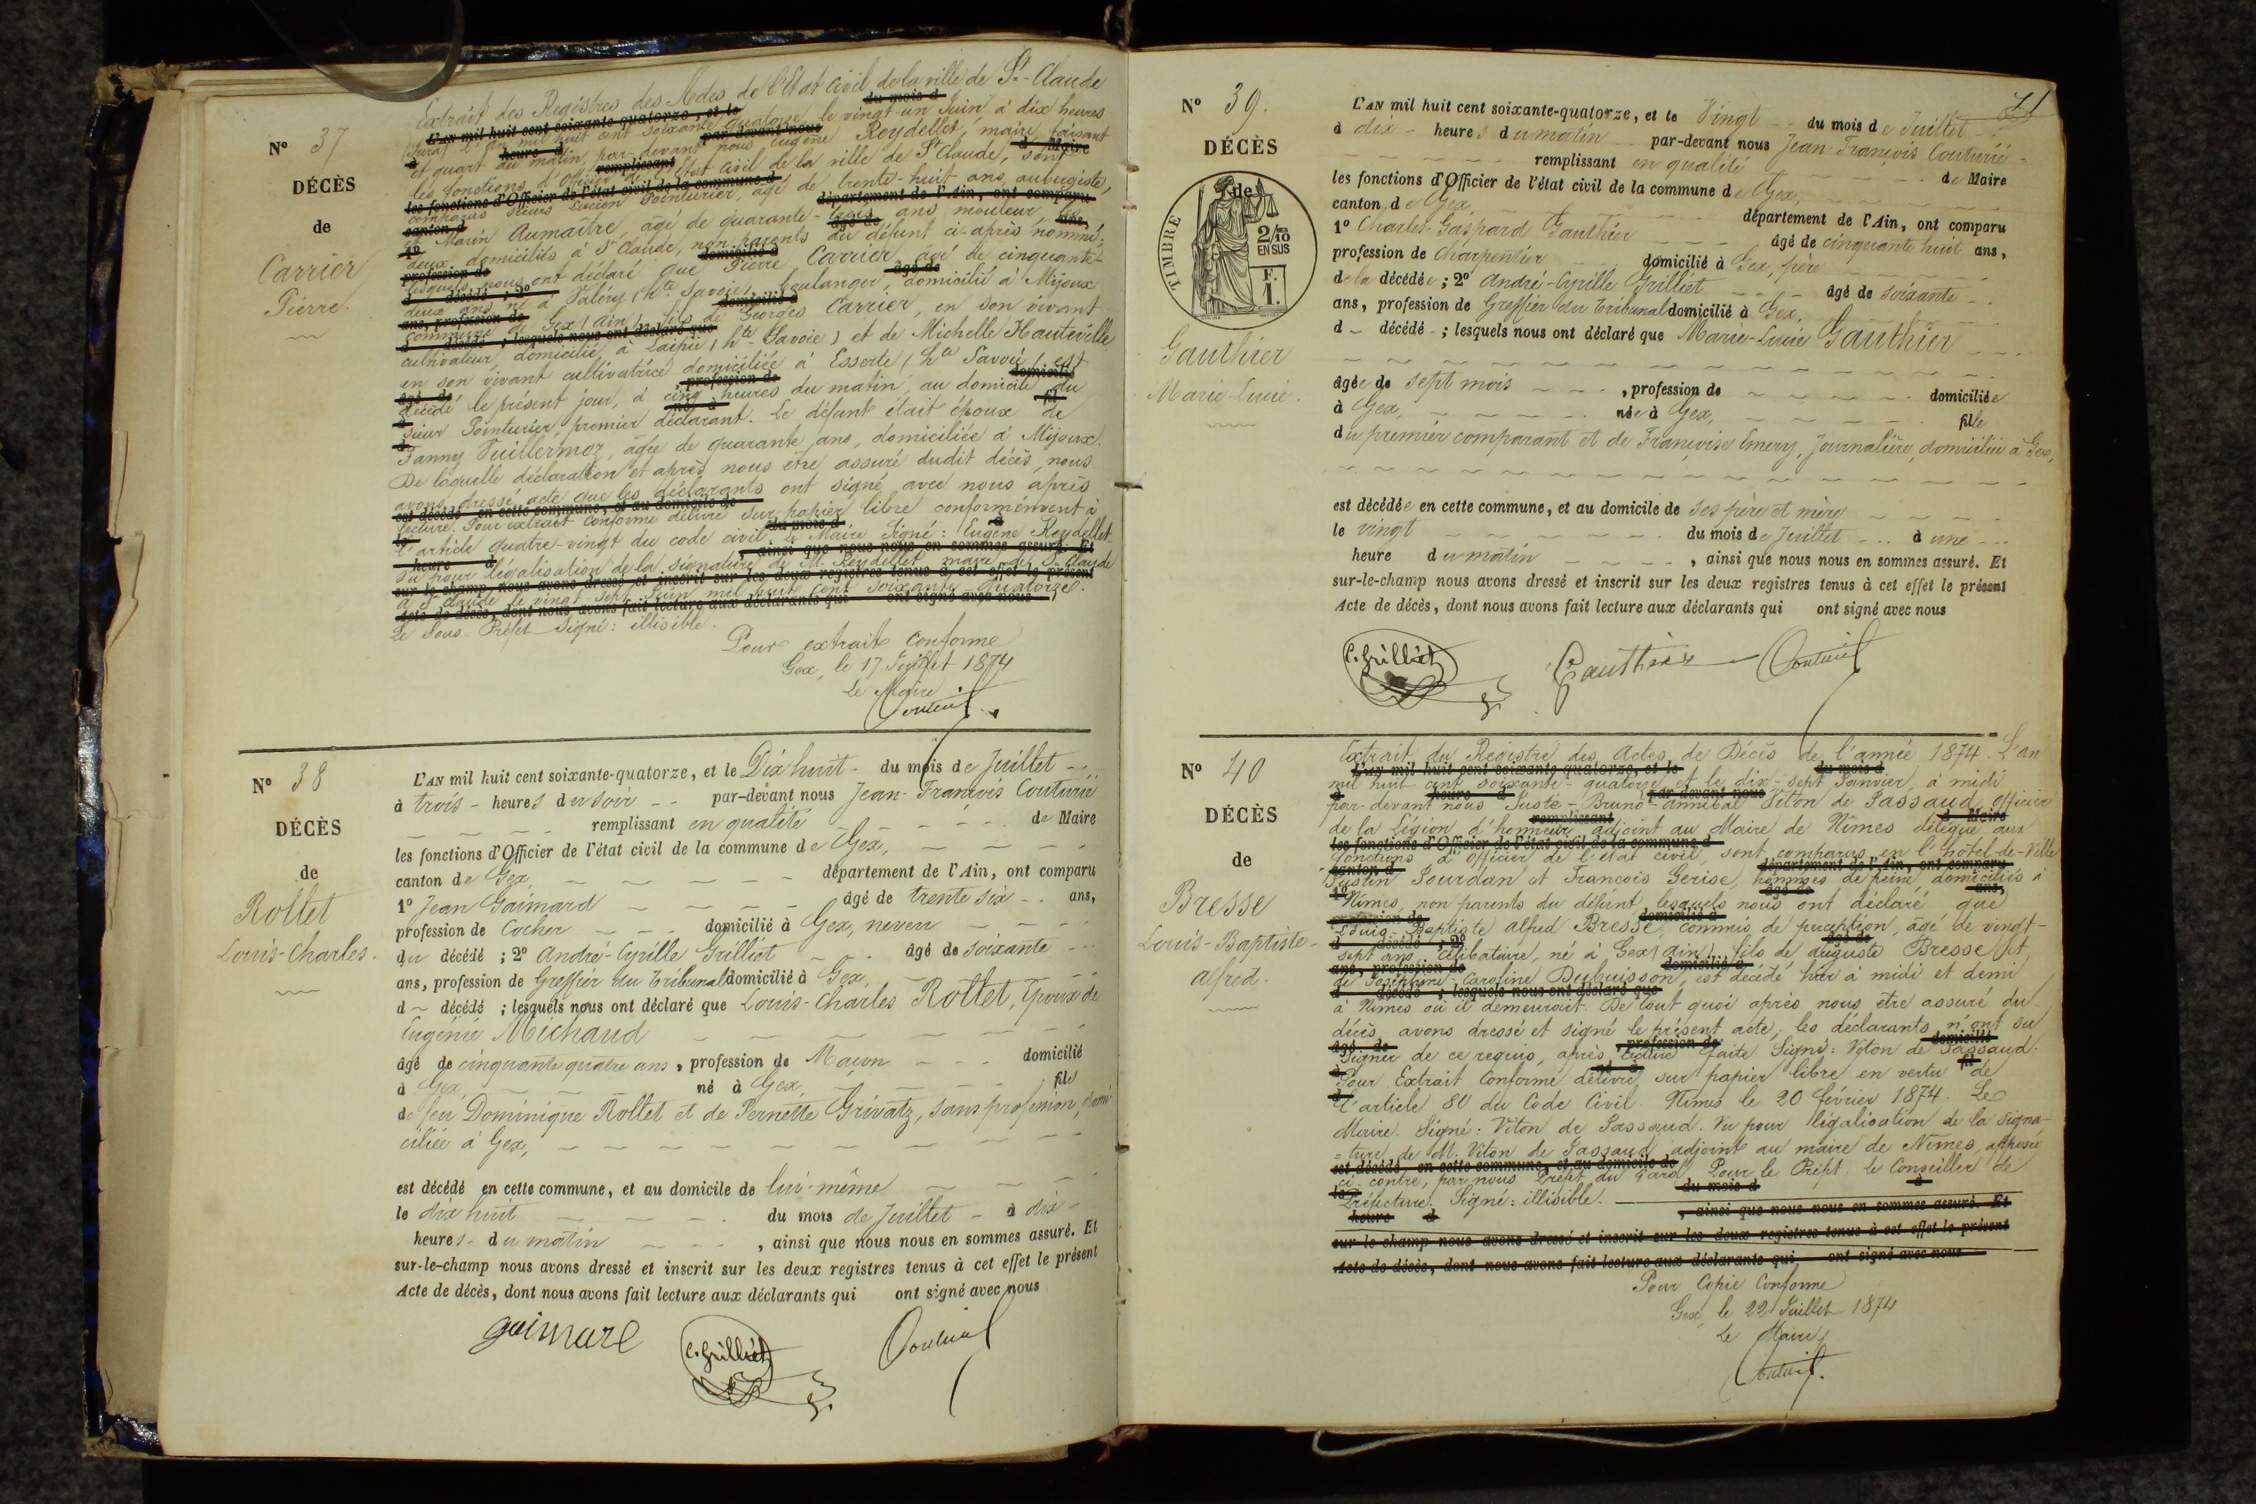 N° 37
DÉCÈS
de
Carrier
Pierre.
Extrait des Registres des Actes de l'Etat civil de la ville de St-Claude
(Jura) L'an mil huit cent soixante quatorze, le vingt-un Juin à dix heures
et quart du matin, par-devant nous Eugène Reydellet, maire, faisant
les fonctions d'Officier de l'Etat civil de la ville de St Claude, sont
comparus sieurs Lucien Pointurier, âgé de trente-huit ans, aubergiste,
et Marin Aumaître, âgé de quarante-trois ans mouleur,
deux domiciliés à St Claude, non parents du défunt ci-après nommé;
lesquels nous ont déclaré que Pierre Carrier âgé de cinquante-
deux ans né à Valéry (hte Savoie) boulanger, domicilié à Mijoux
commune de Gex (Ain), fils de Georges Carrier, en son vivant
cultivateur domicilié à (hte Savoie) et de Michelle Hauteville
en son vivant cultivatrice domiciliée à Esserte (hte Savoie), est
décédé le présent jour, à cinq heures du matin, au domicile du
sieur Pointurier, premier déclarant. Le défunt était époux de
Fanny Vuillermoz, âgée de quarante ans, domiciliée à Mijoux.
De laquelle déclaration et après nous être assuré dudit décès, nous
avons dressé acte que les déclarants ont signé avec nous après
lecture. Pour extrait conforme délivré sur papier libre conformément à
l'article quatre-vingt du code civil. Le Maire Signé: Eugène Reydellet.
Vu pour légalisation de la signature de M. Reydellet, maire de St-Claude
à St Claude le vingt sept Juin mil huit cent soixante quatorze.
Le Sous-Préfet Signé: illisible.
Pour extrait conforme
Gex, le 17 Juillet 1874
Le Maire
Couturié
N° 38
DÉCÈS
de
Rollet
Louis-Charles.
L'AN mil huit cent soixante-quatorze, et le Dix huit - du mois de Juillet
à trois - heures du soir par-devant nous Jean-François Couturié
remplissant en qualité de Maire
les fonctions d'Officier de l'état civil de la commune de Gex,
canton de Gex, département de l'Ain, ont comparu
1° Jean Gaimard âgé de trente six ans,
profession de Cocher domicilié à Gex, neveu
du décédé ; 2° André-Cyrille Grilliet âgé de soixante
ans, profession de Greffier du Tribunal domicilié à Gex,
d décédé ; lesquels nous ont déclaré que Louis-Charles Rollet, époux de
Eugénie Michaud
âgé de cinquante quatre ans, profession de Maçon domicilié
à Gex, né à Gex, fils
de feu Dominique Rollet et de Pernette Grivatz, sans profession, domi-
ciliée à Gex,
est décédé en cette commune, et au domicile de lui-même
le dix huit du mois de Juillet à dix
heures du matin, ainsi que nous nous en sommes assuré. Et
sur-le-champ nous avons dressé et inscrit sur les deux registres tenus à cet effet le présent
Acte de décès, dont nous avons fait lecture aux déclarants qui ont signé avec nous
gaimare
C. Grilliet
Couturié
71
N° 39.
DÉCÈS
de
TIMBRE
2/10
EN SUS
F.
1.
Gauthier
Marie-Lucie.
L'AN mil huit cent soixante-quatorze, et le Vingt du mois de Juillet
à dix - heures du matin par-devant nous Jean-François Couturié
remplissant en qualité de Maire
les fonctions d'Officier de l'état civil de la commune de Gex,
canton de Gex, département de l'Ain, ont comparu
1° Charles-Gaspard Gauthier âgé de cinquante huit ans,
profession de Charpentier domicilié à Gex, père
de la décédée ; 2° André-Cyrille Grilliet âgé de soixante
ans, profession de Greffier du Tribunal domicilié à Gex,
d décédé ; lesquels nous ont déclaré que Marie-Lucie Gauthier
âgée de sept mois, profession de domiciliée
à Gex, née à Gex, fille
du premier comparant et de Françoise Emery, Journalière, domiciliée à Gex,
est décédée en cette commune, et au domicile de ses père et mère
le vingt du mois de Juillet à une
heure du matin, ainsi que nous nous en sommes assuré. Et
sur-le-champ nous avons dressé et inscrit sur les deux registres tenus à cet effet le présent
Acte de décès, dont nous avons fait lecture aux déclarants qui ont signé avec nous
C. Grilliet
Gauthier
Couturié
N° 40
DÉCÈS
de
Bresse
Louis-Baptiste-
alfred.
Extrait du Registre des Actes de Décès de l'année 1874. L'an
mil huit cent soixante-quatorze et le dix-sept Janvier, à midi
par-devant nous Juste-Bruno-annibal Viton de Jassaud, officier
de la Légion d'honneur, adjoint au Maire de Nîmes délégué aux
fonctions d'officier de l'état civil, sont comparus en l'hôtel-de-Ville
Justin Sourdan et François Gerise, hommes de peine, domiciliés à
Nîmes, non parents du défunt, lesquels nous ont déclaré que
Louis-Baptiste alfred Bresse, commis de perception, âgé de vingt-
sept ans, célibataire, né à Gex (ain), fils de auguste Bresse et
de Joséphine Caroline Dubuisson, est décédé hier à midi et demi
à Nîmes où il demeurait. De tout quoi après nous être assuré du
décès, avons dressé et signé le présent acte, les déclarants n'ont su
signer de ce requis, après lecture faite Signé: Viton de Jassaud.
Pour Extrait Conforme délivré sur papier libre en vertu de
l'article 80 du Code Civil. Nîmes le 20 février 1874. Le
Maire. Signé: Viton de Jassaud. Vu pour légalisation de la signa-
=ture de M. Viton de Jassaud adjoint au maire de Nîmes, apposée
ci-contre, par nous Préfet du Gard. Pour le Préfet le Conseiller de
Préfecture. Signé: illisible.
Pour Copie Conforme
Gex, le 22 Juillet 1874
Le Maire
Couturié